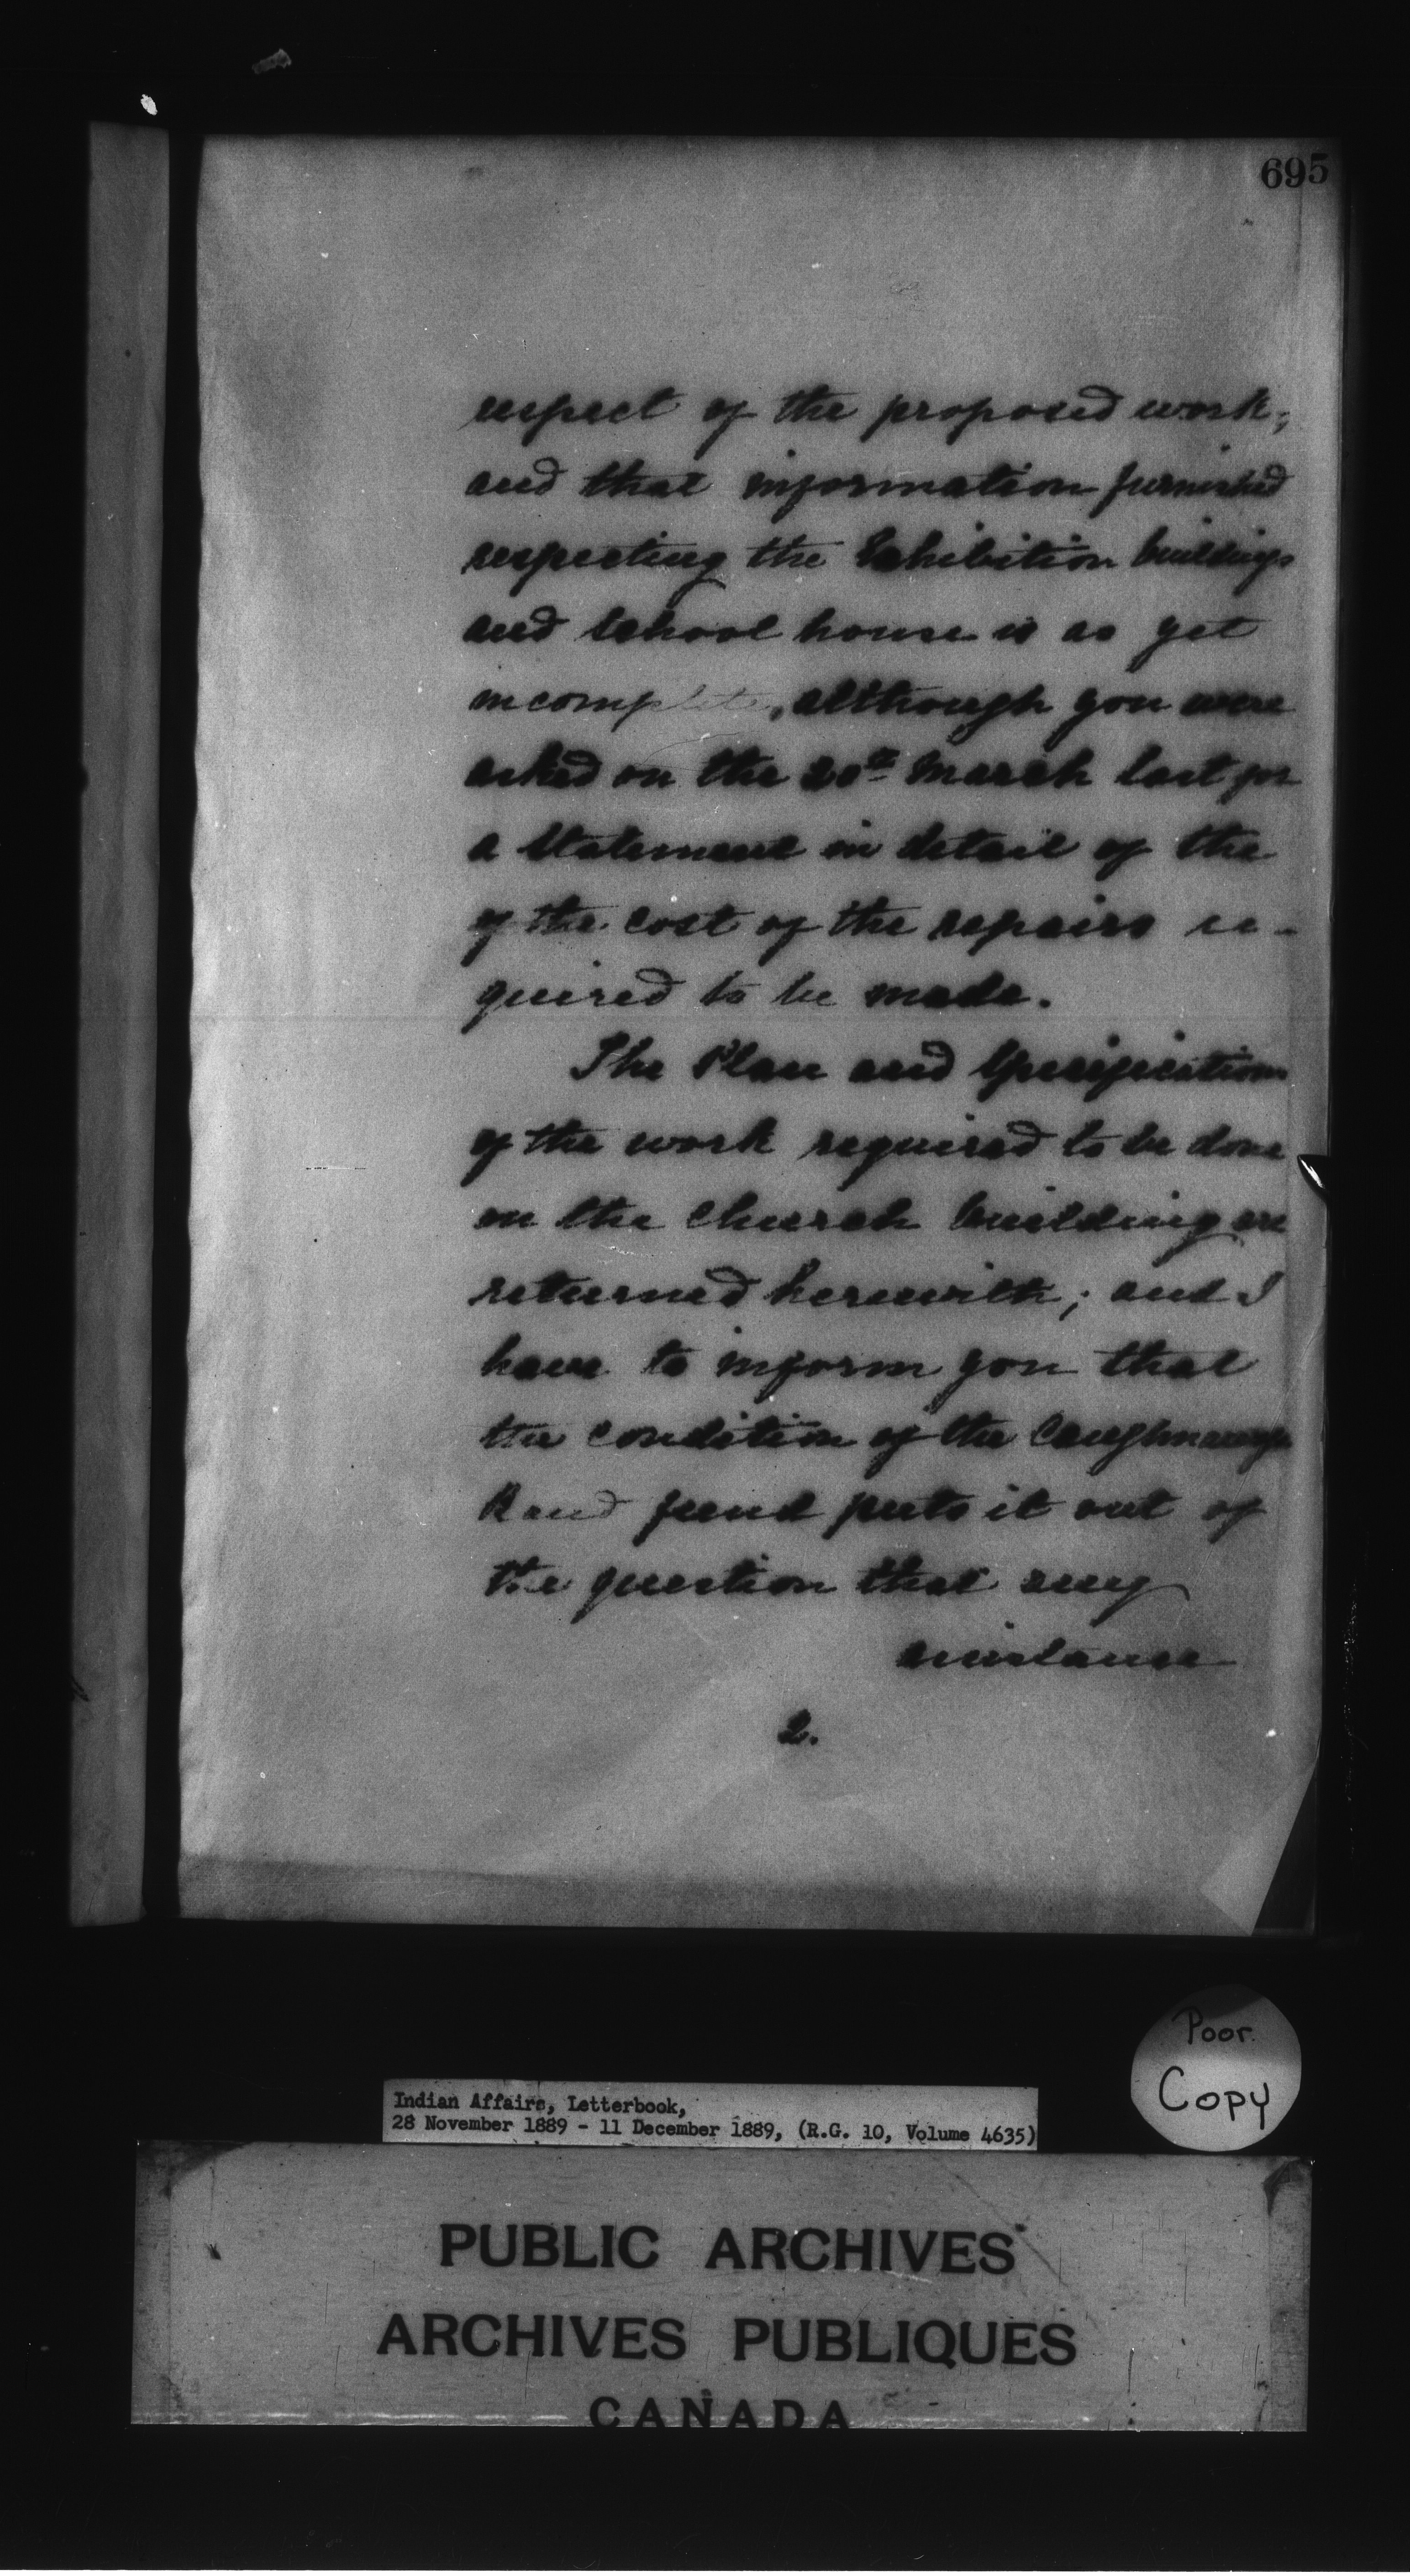 695
respect of the proposed work,
and that information furnished
respecting the Exhibition buildings
and School house is as yet
incomplete, although you were
asked on the 20th March last for
a Statement in detail of the
of the cost of the repairs re-
quired to be made.
The Plan and Specifications
of the work required to be done
on the Church building are
returned herewith; and I
have to inform you that
the condition of the Caughnawaga
Band fund puts it out of
the question that any
assistance
2.
Poor
Copy
Indian Affairs, Letterbook,
28 November 1889 - 11 December 1889, (R.G. 10, Volume 4635)
PUBLIC ARCHIVES
ARCHIVES PUBLIQUES
CANADA